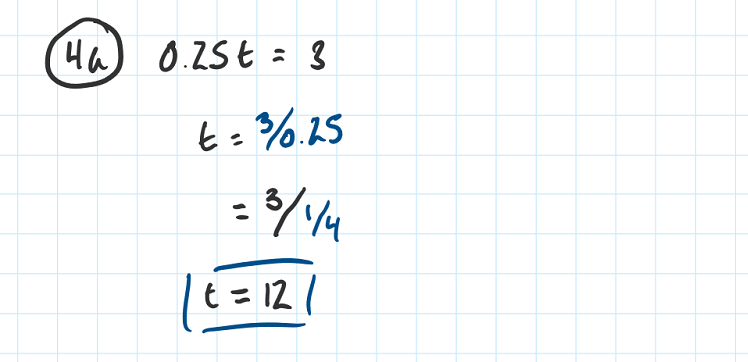 4a 0.25t = 3
t = 3/0.25
= 3/1/4
t = 12